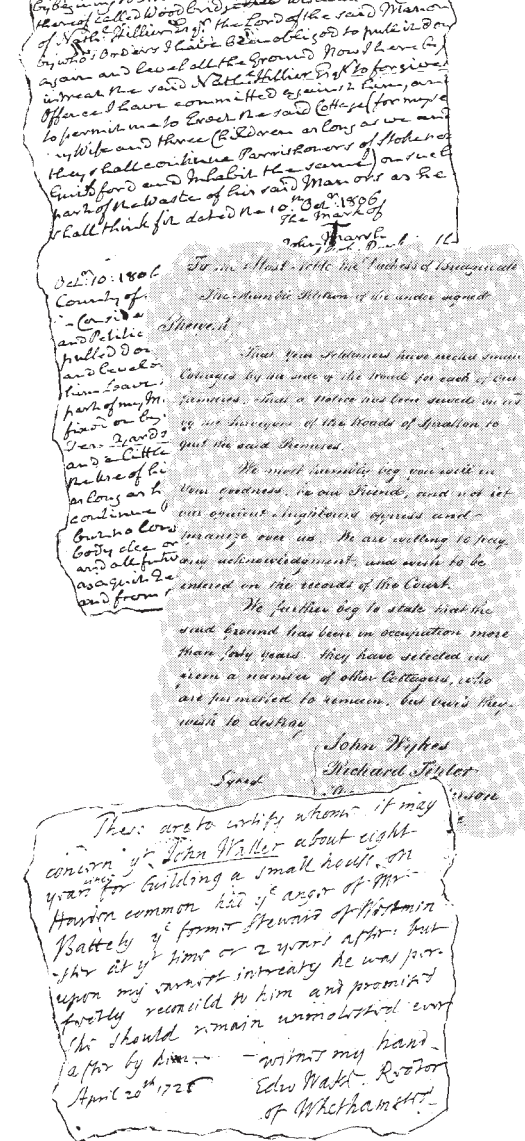 thereof called Wood bridge
of Nathl. Hillier Esqr. the Lord of the said Manor
by who's Orders I have been obliged to pull it down
again and level all the Ground Now I hereby
intreat the said Nathl. Hillier Esqr. to forgive
Offence I have committed against him, and
to permit me to Erect the said Cottage (for myse
my Wife and three Children as long as we and
they shall continue Parrishoners of Stoke next
Guildford and Inhabit the same) on such
part of the Waste of his said Manors as he
shall think fit dated the 10th Octr. 1806
The Mark of
John Marsh
Octr. 10: 1806
County of
Conside
and Petitio
pulled dow
and levele
him Leave
part of my M
fix on by
Ten Yards
and a Little
the Use of hi
as long as h
continue
but no lon
body else or
and all futu
as a quit Re
and from
To the Most Noble the Duchess of Buccleugh
The Humble Petition of the under signed
Sheweth,
That your Petitioners have erected small
Cottages by the side of the Road for each of our
families, that a Notice has been served on us
by the Surveyors of the Roads of Spratton to
quit the said Premises.
We most humbly beg you will in
your goodness, be our Friend, and not let
our opulent Neighbours oppress and
tyranize over us. We are willing to pay
any acknowledgment, and wish to be
entered on the records of the Court.
We further beg to state that the
said Ground has been in occupation more
than forty years. they have selected us
from a number of other Cottagers, who
are permitted to remain, but ours they
wish to destroy
John Wykes
Richard
Signed
These are to certify whome it may
concern yt. John Waller about eight
years since for building a small house on
Harden common had ye anger of Mr
Battely ye former Steward of Westmin
ster at yt time or 2 years after: but
upon my earnest intreaty he was per-
fectly reconcild to him and promised
he should remain unmolested ever
after by him — witness my hand
April 20th 1725 Edw Wake. Rector
of Whethamsted